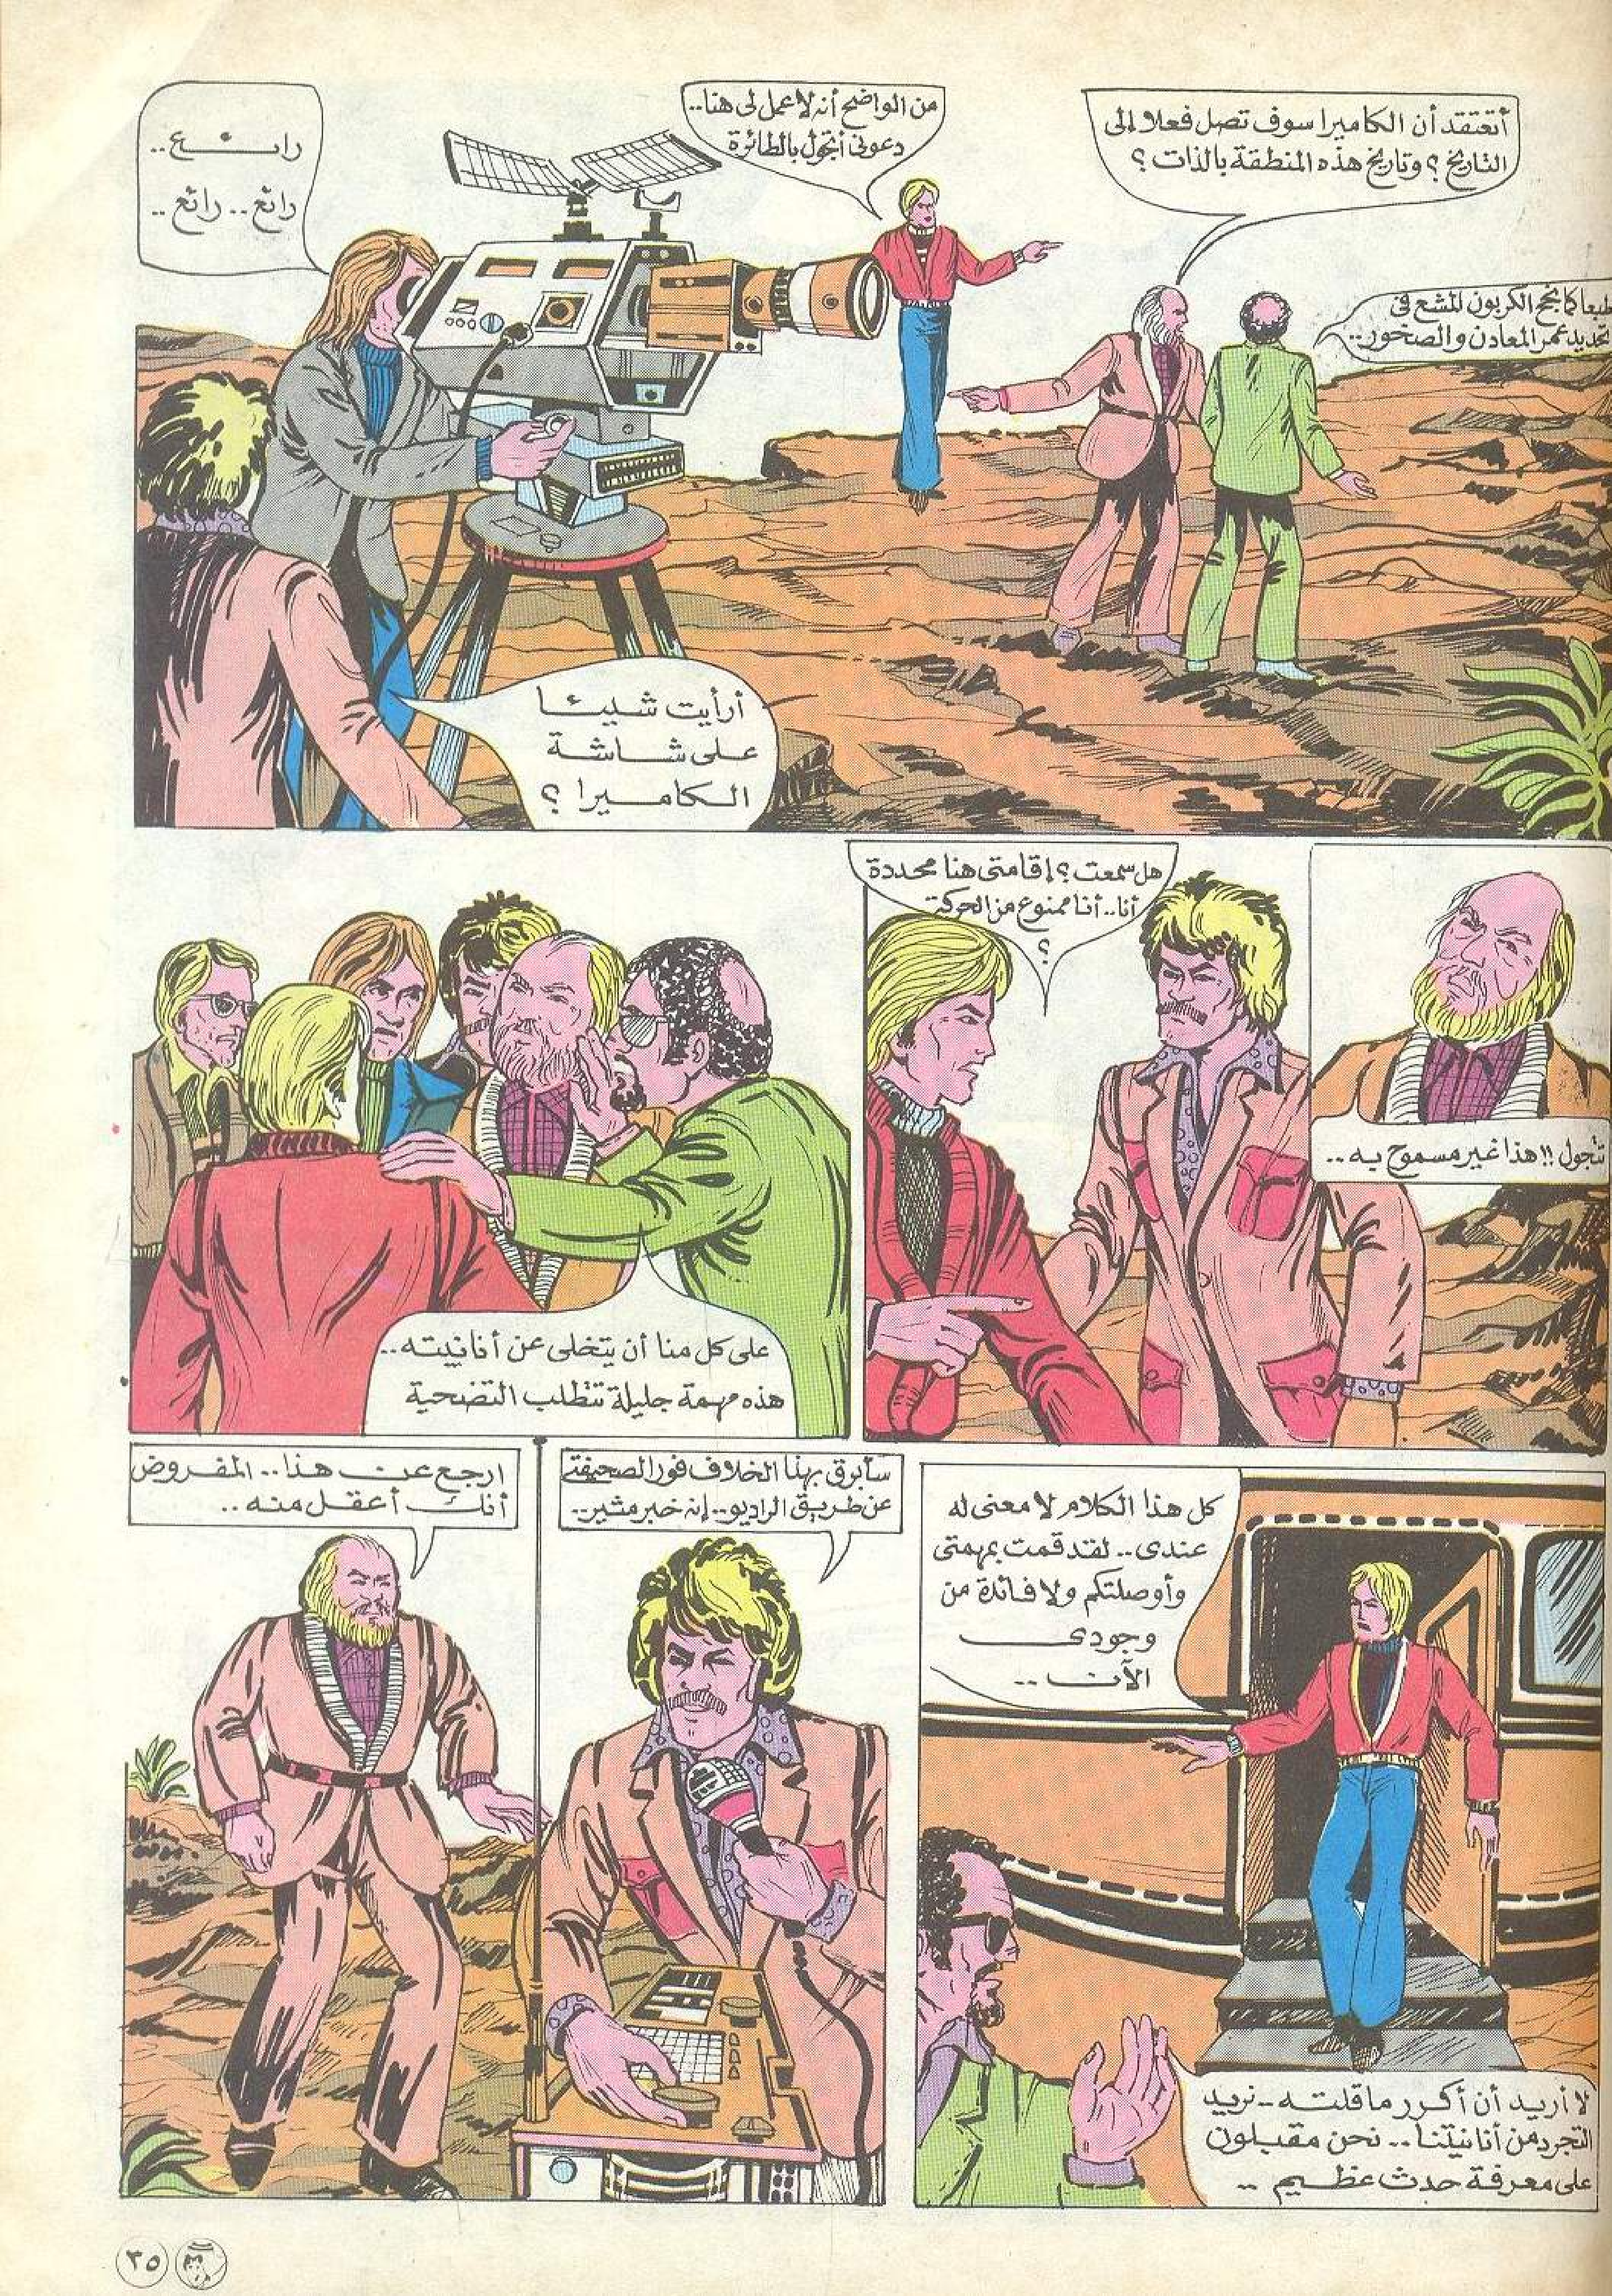 أتعتقد أن الكاميرا سوف تصل فعلا إلى
التاريخ ؟ وتاريخ هذه المنطقة بالذات ؟
طبعا كما نجح الكربون المشع فى
تحديد عمر المعادن والصخور..
من الواضح أنه لا عمل لى هنا..
دعونى أتجول بالطائرة
رائع..
رائع.. رائع..
أرأيت شيئا
على شاشة
الكاميرا ؟
تتجول !! هذا غير مسموح به..
هل سمعت ؟ إقامتى هنا محددة
أنا.. أنا ممنوع من الحركة
؟
على كل منا أن يتخلى عن أنانيته..
هذه مهمة جليلة تتطلب التضحية
كل هذا الكلام لا معنى له
عندى.. لقد قمت بمهمتى
وأوصلتكم ولا فائدة من
وجودى
الآن..
لا أريد أن أكرر ما قلته.. نريد
التجرد من أنانيتنا.. نحن مقبلون
على معرفة حدث عظيم..
سأبرق بهذا الخلاف فورا لصحيفتى
عن طريق الراديو.. إنه خبر مثير..
ارجع عن هذا.. المفروض
أنك أعقل منه..
٣٥